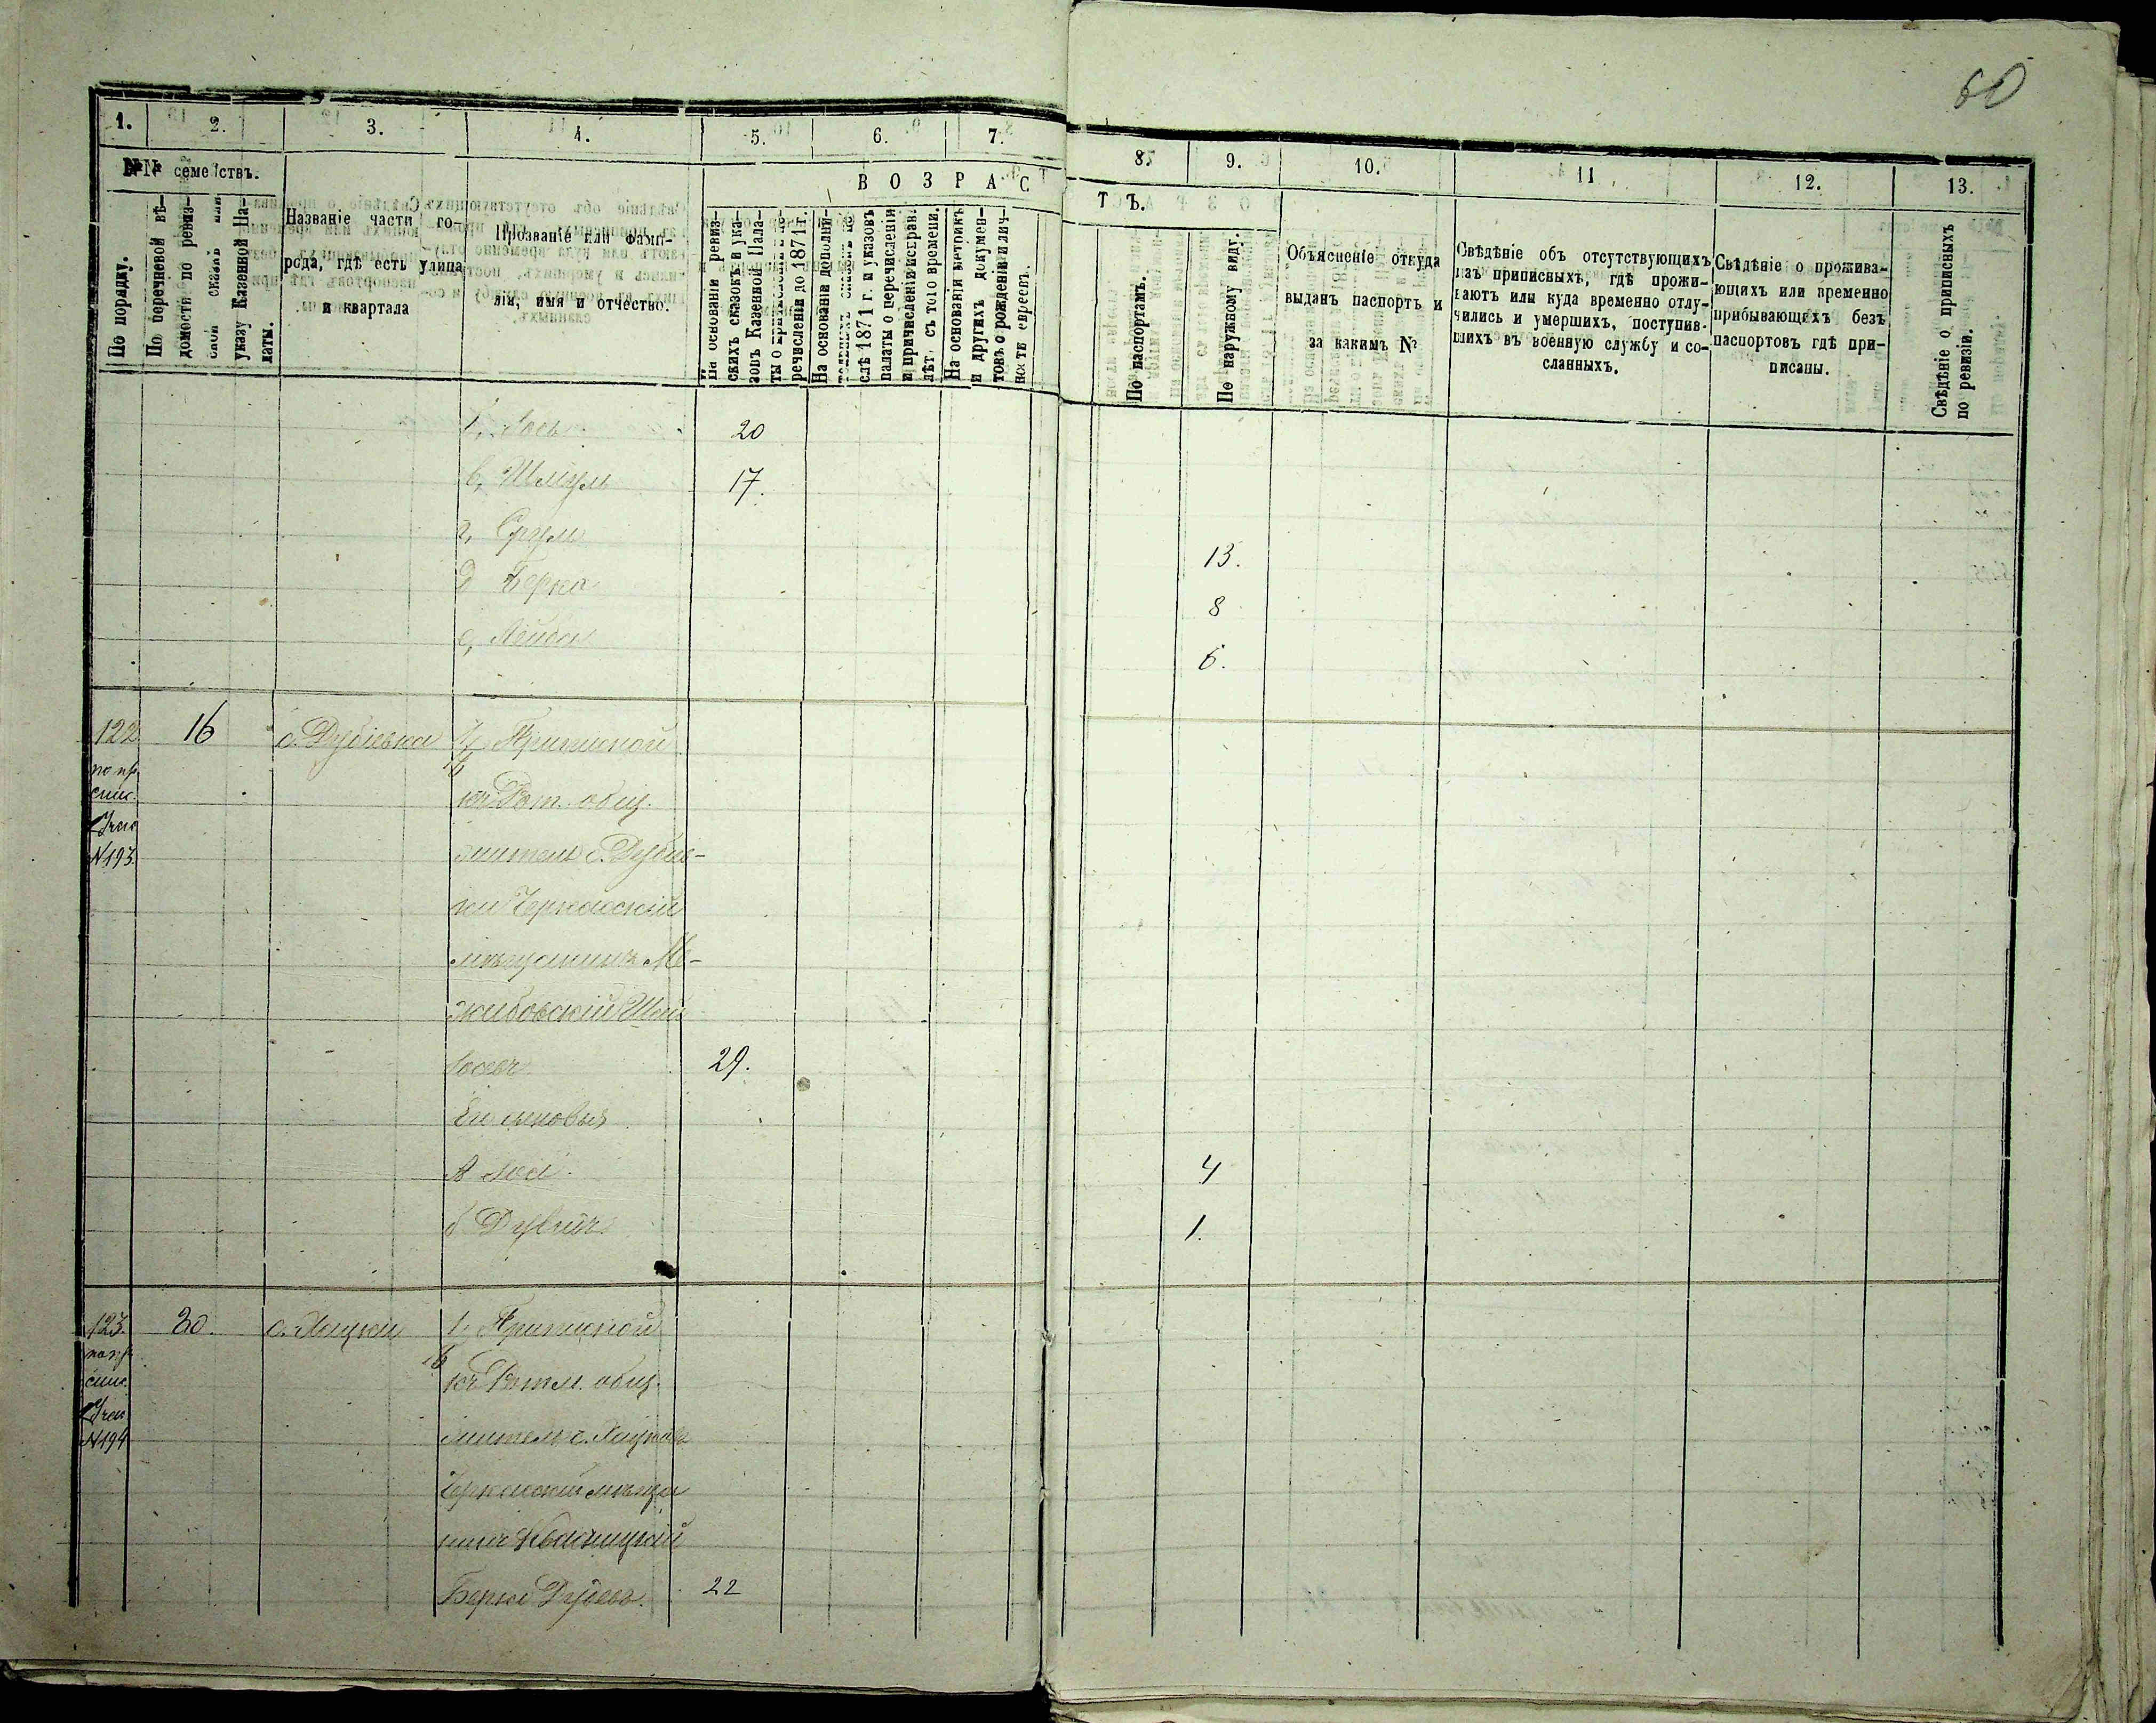 60
1. 2. 3. 4. 5. 6. 7. 8. 9. 10. 11 12. 13.
№№ семействъ.
По порядку.
По перечневой вѣ-
домости по ревиз-
ской сказкѣ или
указу Казенной Па-
латы.
Названіе части го-
рода, гдѣ есть улица
и квартала
Прозваніе или фами-
лія, имя и отчество.
ВОЗРАСТЪ.
На основаніи ревиз-
скихъ сказокъ и ука-
зовъ Казенной Пала-
ты о
речисленіи до 1871 г.
На основаніи дополни-
слѣ 1871 г. и указовъ
палаты о перечисленіи
и причисленіи
лѣтъ съ того времени.
На основаніи метрикъ
и другихъ докумен-
товъ о рожденіи и лич-
ности евреевъ.
По паспортамъ.
По наружному виду.
Объясненіе откуда
выданъ паспортъ и
за какимъ №
Свѣдѣніе объ отсутствующихъ
изъ приписныхъ, гдѣ прожи-
ваютъ или куда временно отлу-
чились и умершихъ, поступив-
шихъ въ военную службу и со-
сланныхъ.
Свѣдѣніе о прожива-
ющихъ или временно
прибывающихъ безъ
паспортовъ гдѣ при-
писаны.
Свѣдѣніе о приписныхъ
по ревизіи.
20
в, Шмуль 17.
г, Сруль 13.
д Берко 8
е, Лейба 6.
122 16 с. Дубіевка 1, Приписной
по пр.
спис.
№193.
къ Рот. общ.
житель с. Дубіев-
ки Черкасскій
мѣщанинъ Ме-
жибовскій
29.
Его сыновья
А 4
б 1.
123. 30. с. Хацки 1. Приписной
по пр.
спис.
№194
къ Ротм. общ.
житель с. Хацковъ
Черкасскій мѣща
нинъ Квасницкій
Берко 22